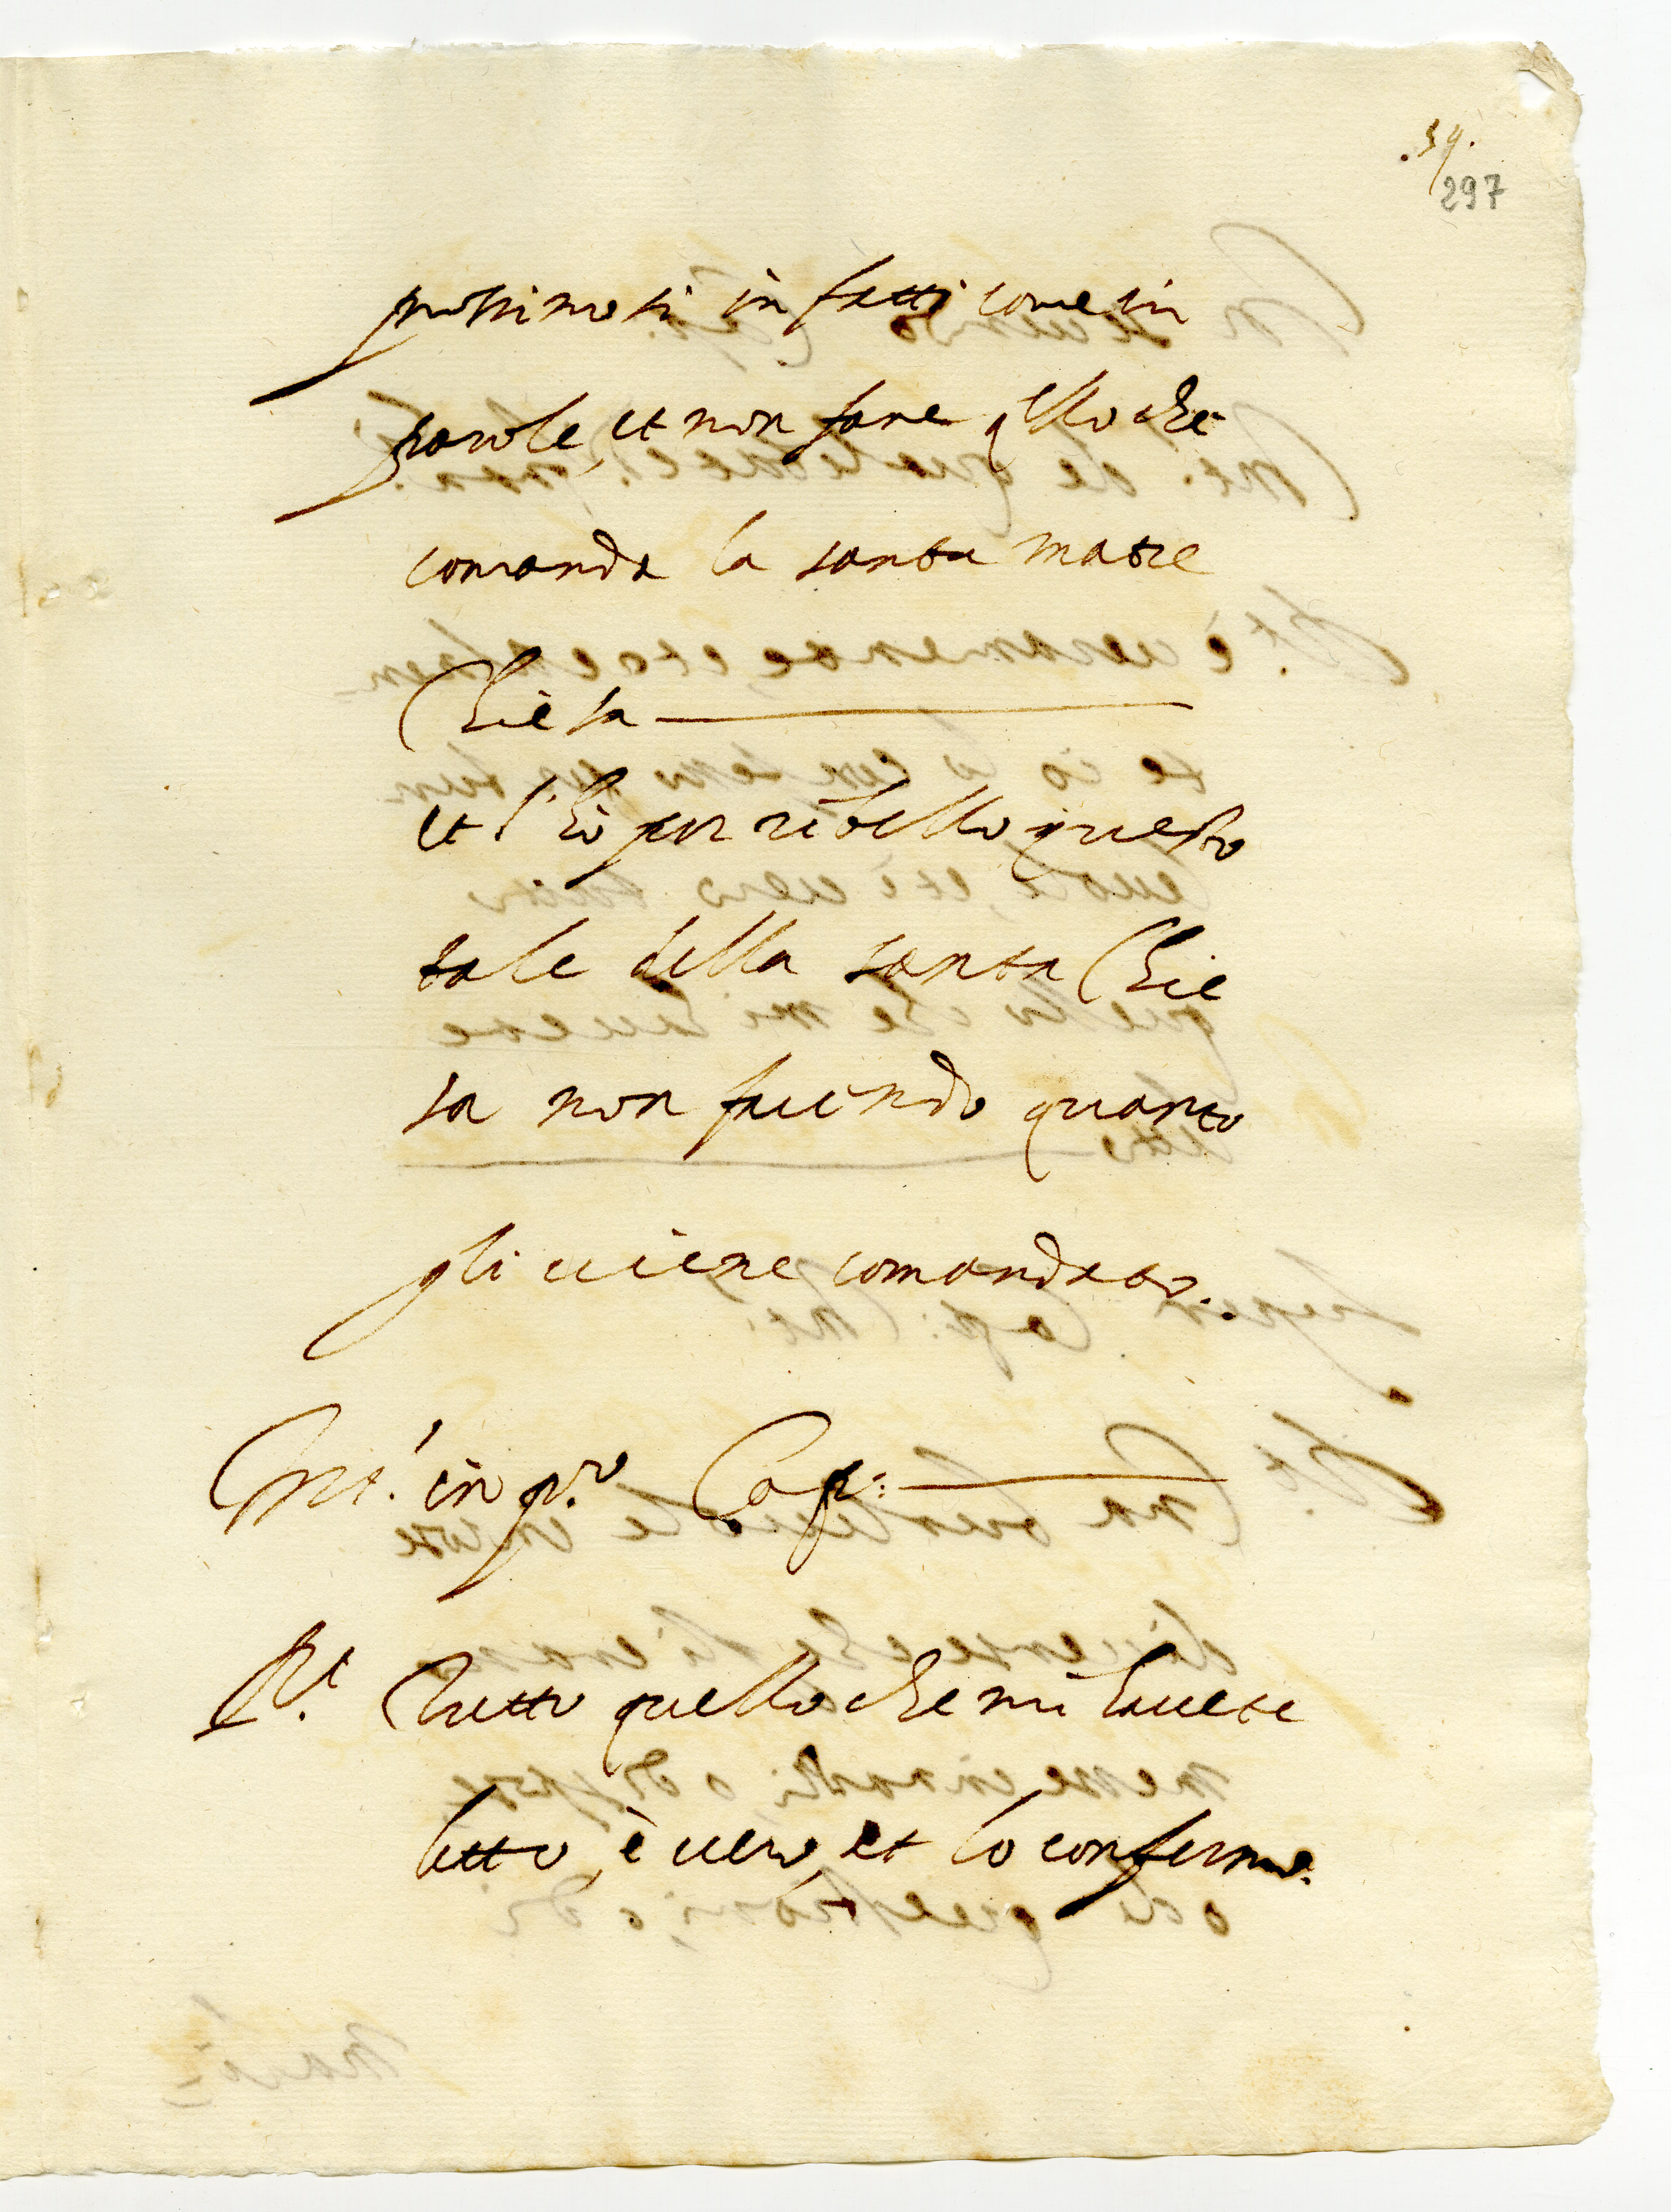 .59.
297
prossimo si in fatti come in
parole, et non fare qllo che
comanda la santa matre
Chiesa
et l'hò per ribello questo
tale della santa Chie
sa non facendo quanto
gli uiene comandato.
Int. in p.º Cap:
Rt. Tutto quello che mi hauete
letto è uero, et lo confermo.